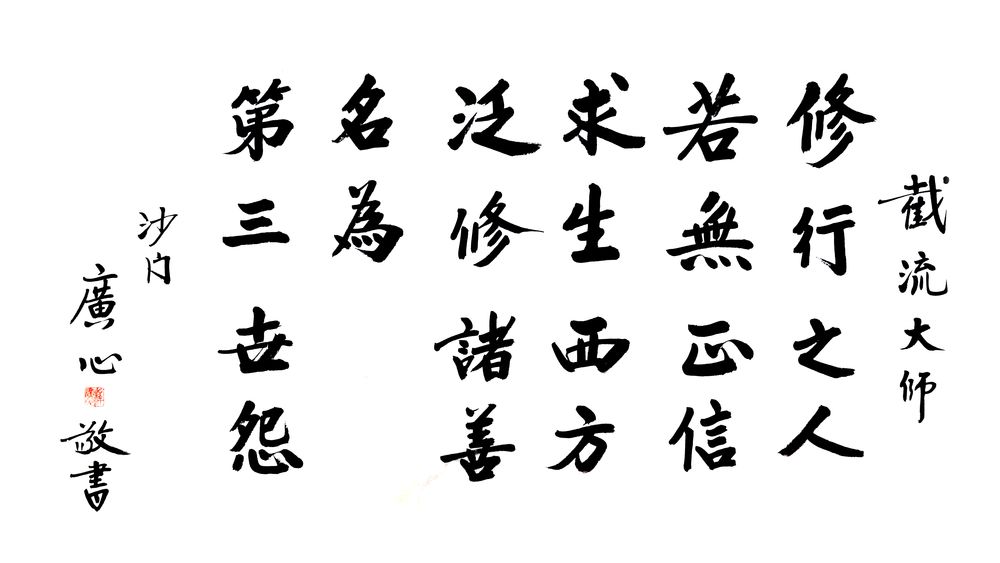 截流大师
修行之人
若無正信
求生西方
泛修諸善
名為
第三世怨
沙门
廣心
敬書